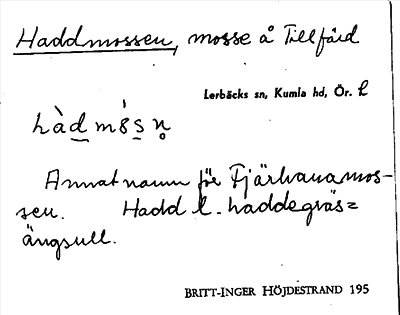 Haddmossen, mosse å Tillfärd
Lerbäcks sn, Kumla hd, Ör. l.
hàd mósn̥
Annat namn för Fjärhanamos-
sen. Hadd l. haddegräs=
ängsull.
BRITT-INGER HÖJDESTRAND 195